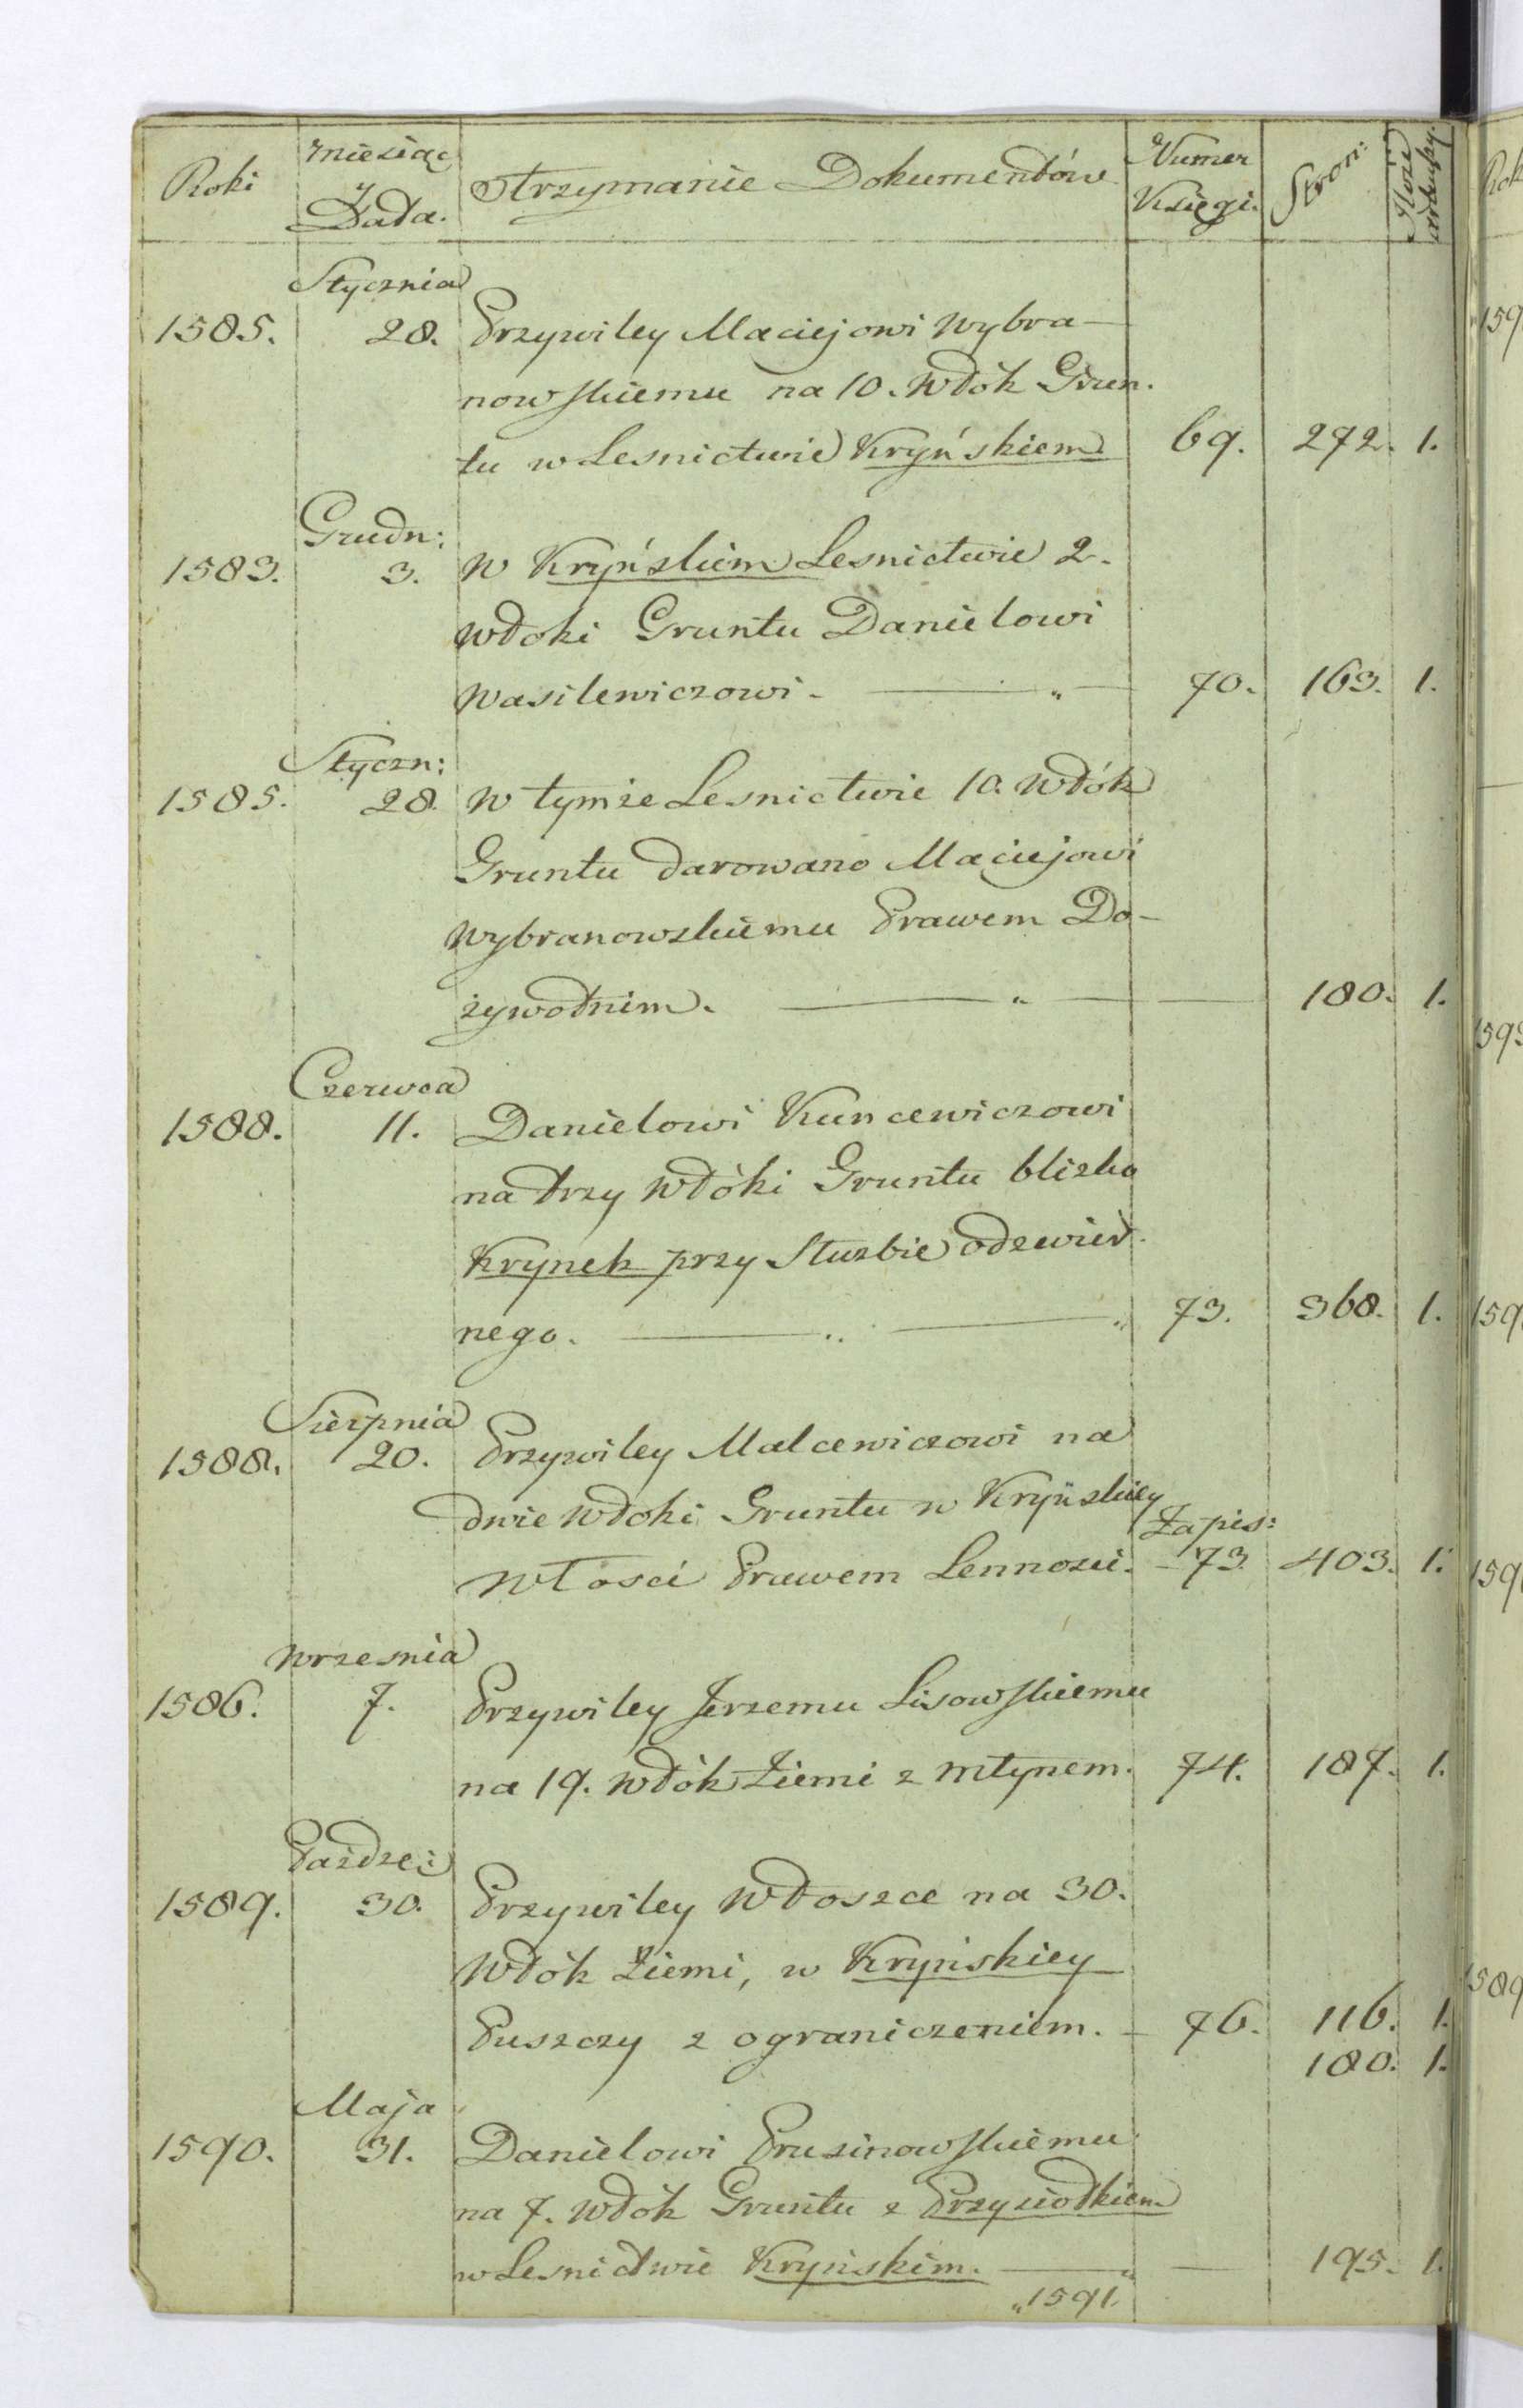 Roki
Miesiąc
y
Data.
Trzymanie Dokumentów
Numer
Księgi.
Stron:
Stycznia
1585. 28. Przywiley Maciejowi Wybra-
nowskiemu na 10. Włók Grun.
tu w Lesnictwie Kryńskiem 69. 272. 1.
Grudn:
1583. 3. W Kryńskiem Lesnictwie 2.
Włoki Gruntu Danielowi
Wasilewiczowi. 70. 163. 1.
Styczn:
1585. 28. W tymże Lesnictwie 10. Włók
Gruntu darowano Maciejowi
Wybranowskiemu Prawem Do-
żywotnim. 180. 1.
Czerwca
1588. 11. Danielowi Kuncewiczowi
na trzy Włóki Gruntu blizko
Krynek przy Służbie odzwier.
nego. 73. 368. 1.
Sierpnia
1588. 20. Przywiley Malcewiczowi na
dwie Włoki Gruntu w Kryńskiey
Zapis:
Włosci Prawem Lennozci. 73. 403. 1.
Wrzesnia
1586. 7. Przywiley Jerzemu Lisowskiemu
na 19. Włók Ziemi z Młynem. 74. 187. 1.
Pażdze:
1589. 30. Przywiley Włoszce na 30.
Włók Ziemi, w Kryńskiey
Puszczy z ograniczeniem. 76. 116. 1.
180. 1.
Maja
1590. 31. Danielowi Prusinowskiemu
na 7. Włók Gruntu z Przysiołkiem
w Lesnictwie Kryńskim. 195. 1.
„1591.